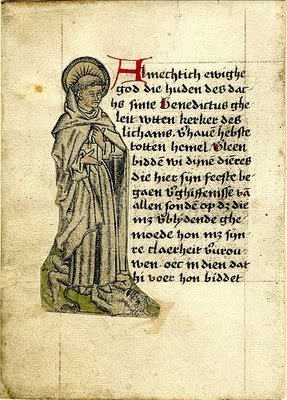 Almechtich ewighe
god die huden des dac
hs sinte Benedictus ghe
leit wtten kerker des
lichams. vhauē hebste
totten hemel. Vleen
biddē wi dijnē diēres
die hier sijn feeste be
gaen vghiffenisse vā
allen sondē op dz die
mz vblydende ghe
moede hon mz sijn
re claerheit vurou
wen. oec in dien dat
hi voer hon biddet